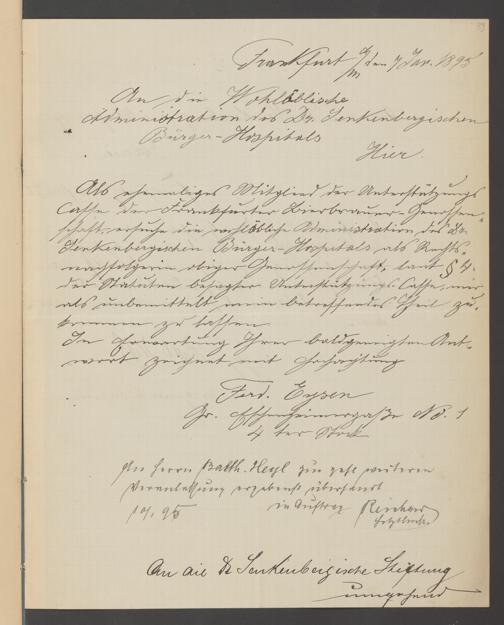 Frankfurt a/m den 7 Jan. 1895
An die Wohllöbliche
Administration des Dr. Senkenbergischen
Bürger-Hospitals
Hier.
Als ehemaliges Mitglied der Unterstützungs
Casse der Frankfurter Bierbrauer-Genossen-
schaft, ersuche die wohllöbliche Administration des Dr.
Senkenbergischen Bürger-Hospitals als Rechts-
nachfolgerin obiger Genossenschaft, laut § 4.
der Statuten besagter Unterstützungs-Casse, mir
als unbemittelt mein betreffendes Theil zu-
kommen zu lassen.
In Erwartung Ihrer baldgeneigten Ant-
wort zeichnet mit Hochachtung
Ferd. Eysen
Gr. Eschenheimergaße No. 1
4 ter Stock
An Herrn Balth. Heyl zur gefl. weiteren
Veranlassung ergebenst übersandt
in Auftrag
95
An die Dr Senkenbergische Stiftung
umgehend